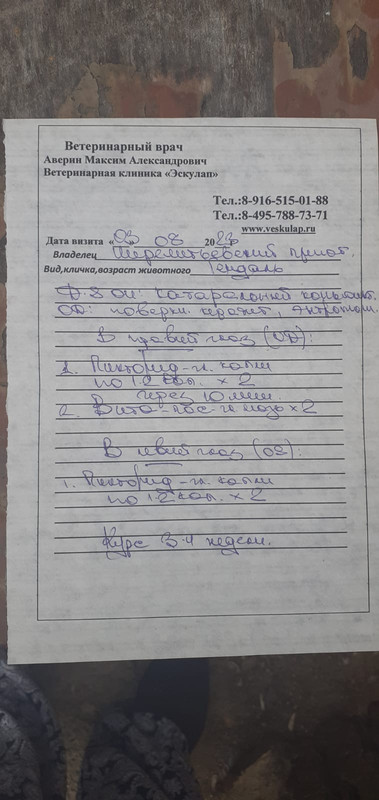 Ветеринарный врач
Аверин Максим Александрович
Ветеринарная клиника «Эскулап»
Тел.:8-916-515-01-88
Тел.:8-495-788-73-71
www.veskulap.ru
Дата визита « 03 08 20
Владелец Шереметьевский приют.
Вид,кличка,возраст животного Гендаль
OU: Катаральный
OD: поверхн. кератит,
В правый глаз (OD):
1. гл. капли
по 1-2 кап. х 2
через 10 мин.
2. х 2
В левый глаз (OS):
1. гл. капли
по 1-2 кап. х 2
Курс 3-4 недели.